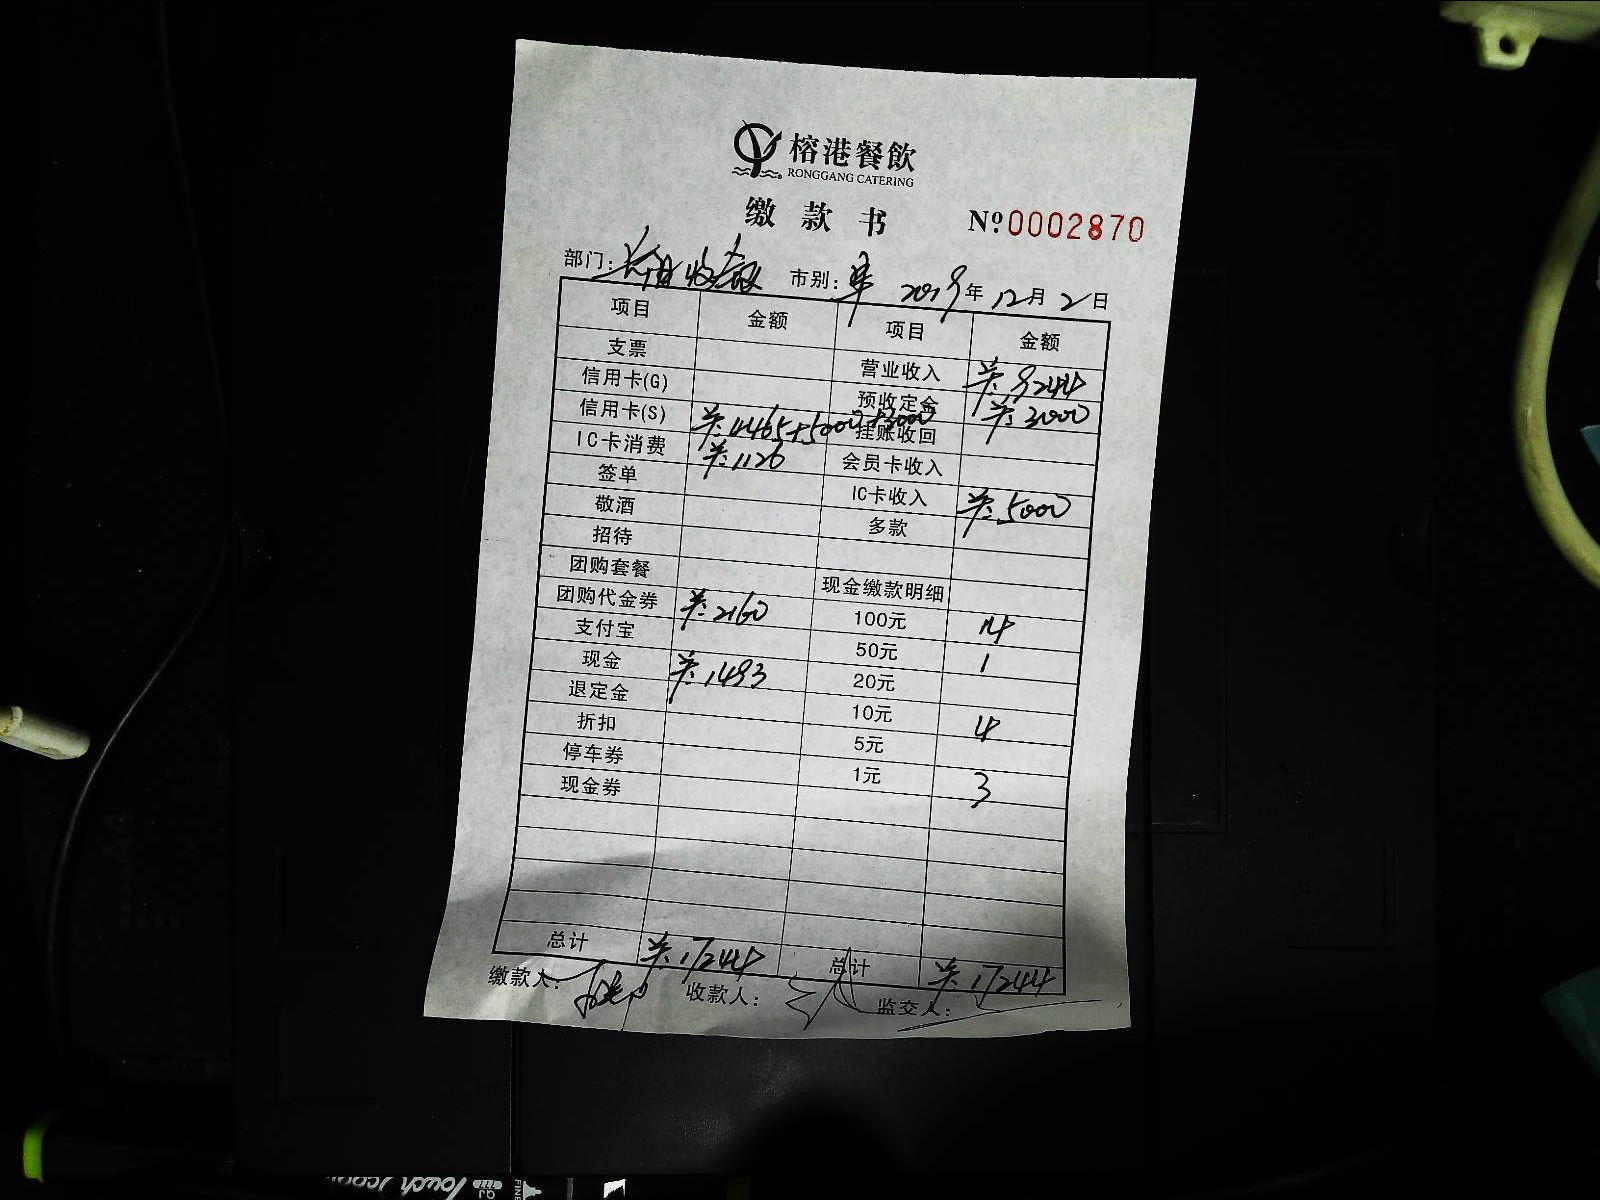 榕港餐飲
RONGGANG CATERING
缴款书 Nº:0002870
部门: 市别: 2019年12月2日
项目 金额 项目 金额
支票 营业收入 ¥:9244
信用卡(G) 预收定金 ¥:3000
信用卡(S) ¥:4465+5000+3000 挂账收回
IC卡消费 ¥:1126 会员卡收入
签单 IC卡收入 ¥:5000
敬酒 多款
招待
团购套餐 现金缴款明细
团购代金券 ¥:2160 100元 14
支付宝 50元 1
现金 ¥:1493 20元
退定金 10元 4
折扣 5元
停车券 1元 3
现金券
总计 ¥:17244 总计 ¥:17244
缴款人: 收款人: 监交人:
Touch